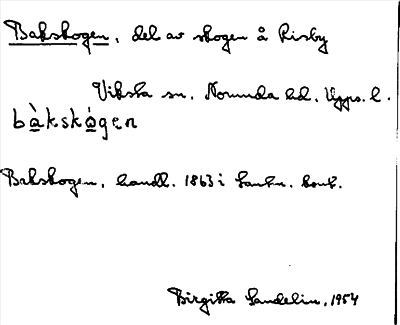 Bakskogen, del av skogen å Risby
Viksta sn, Norunda hd, Upps. l.
bàkskò̀gen
Bakskogen, handl. 1863 i Lantm. kont.
Birgitta Sandelin, 1954